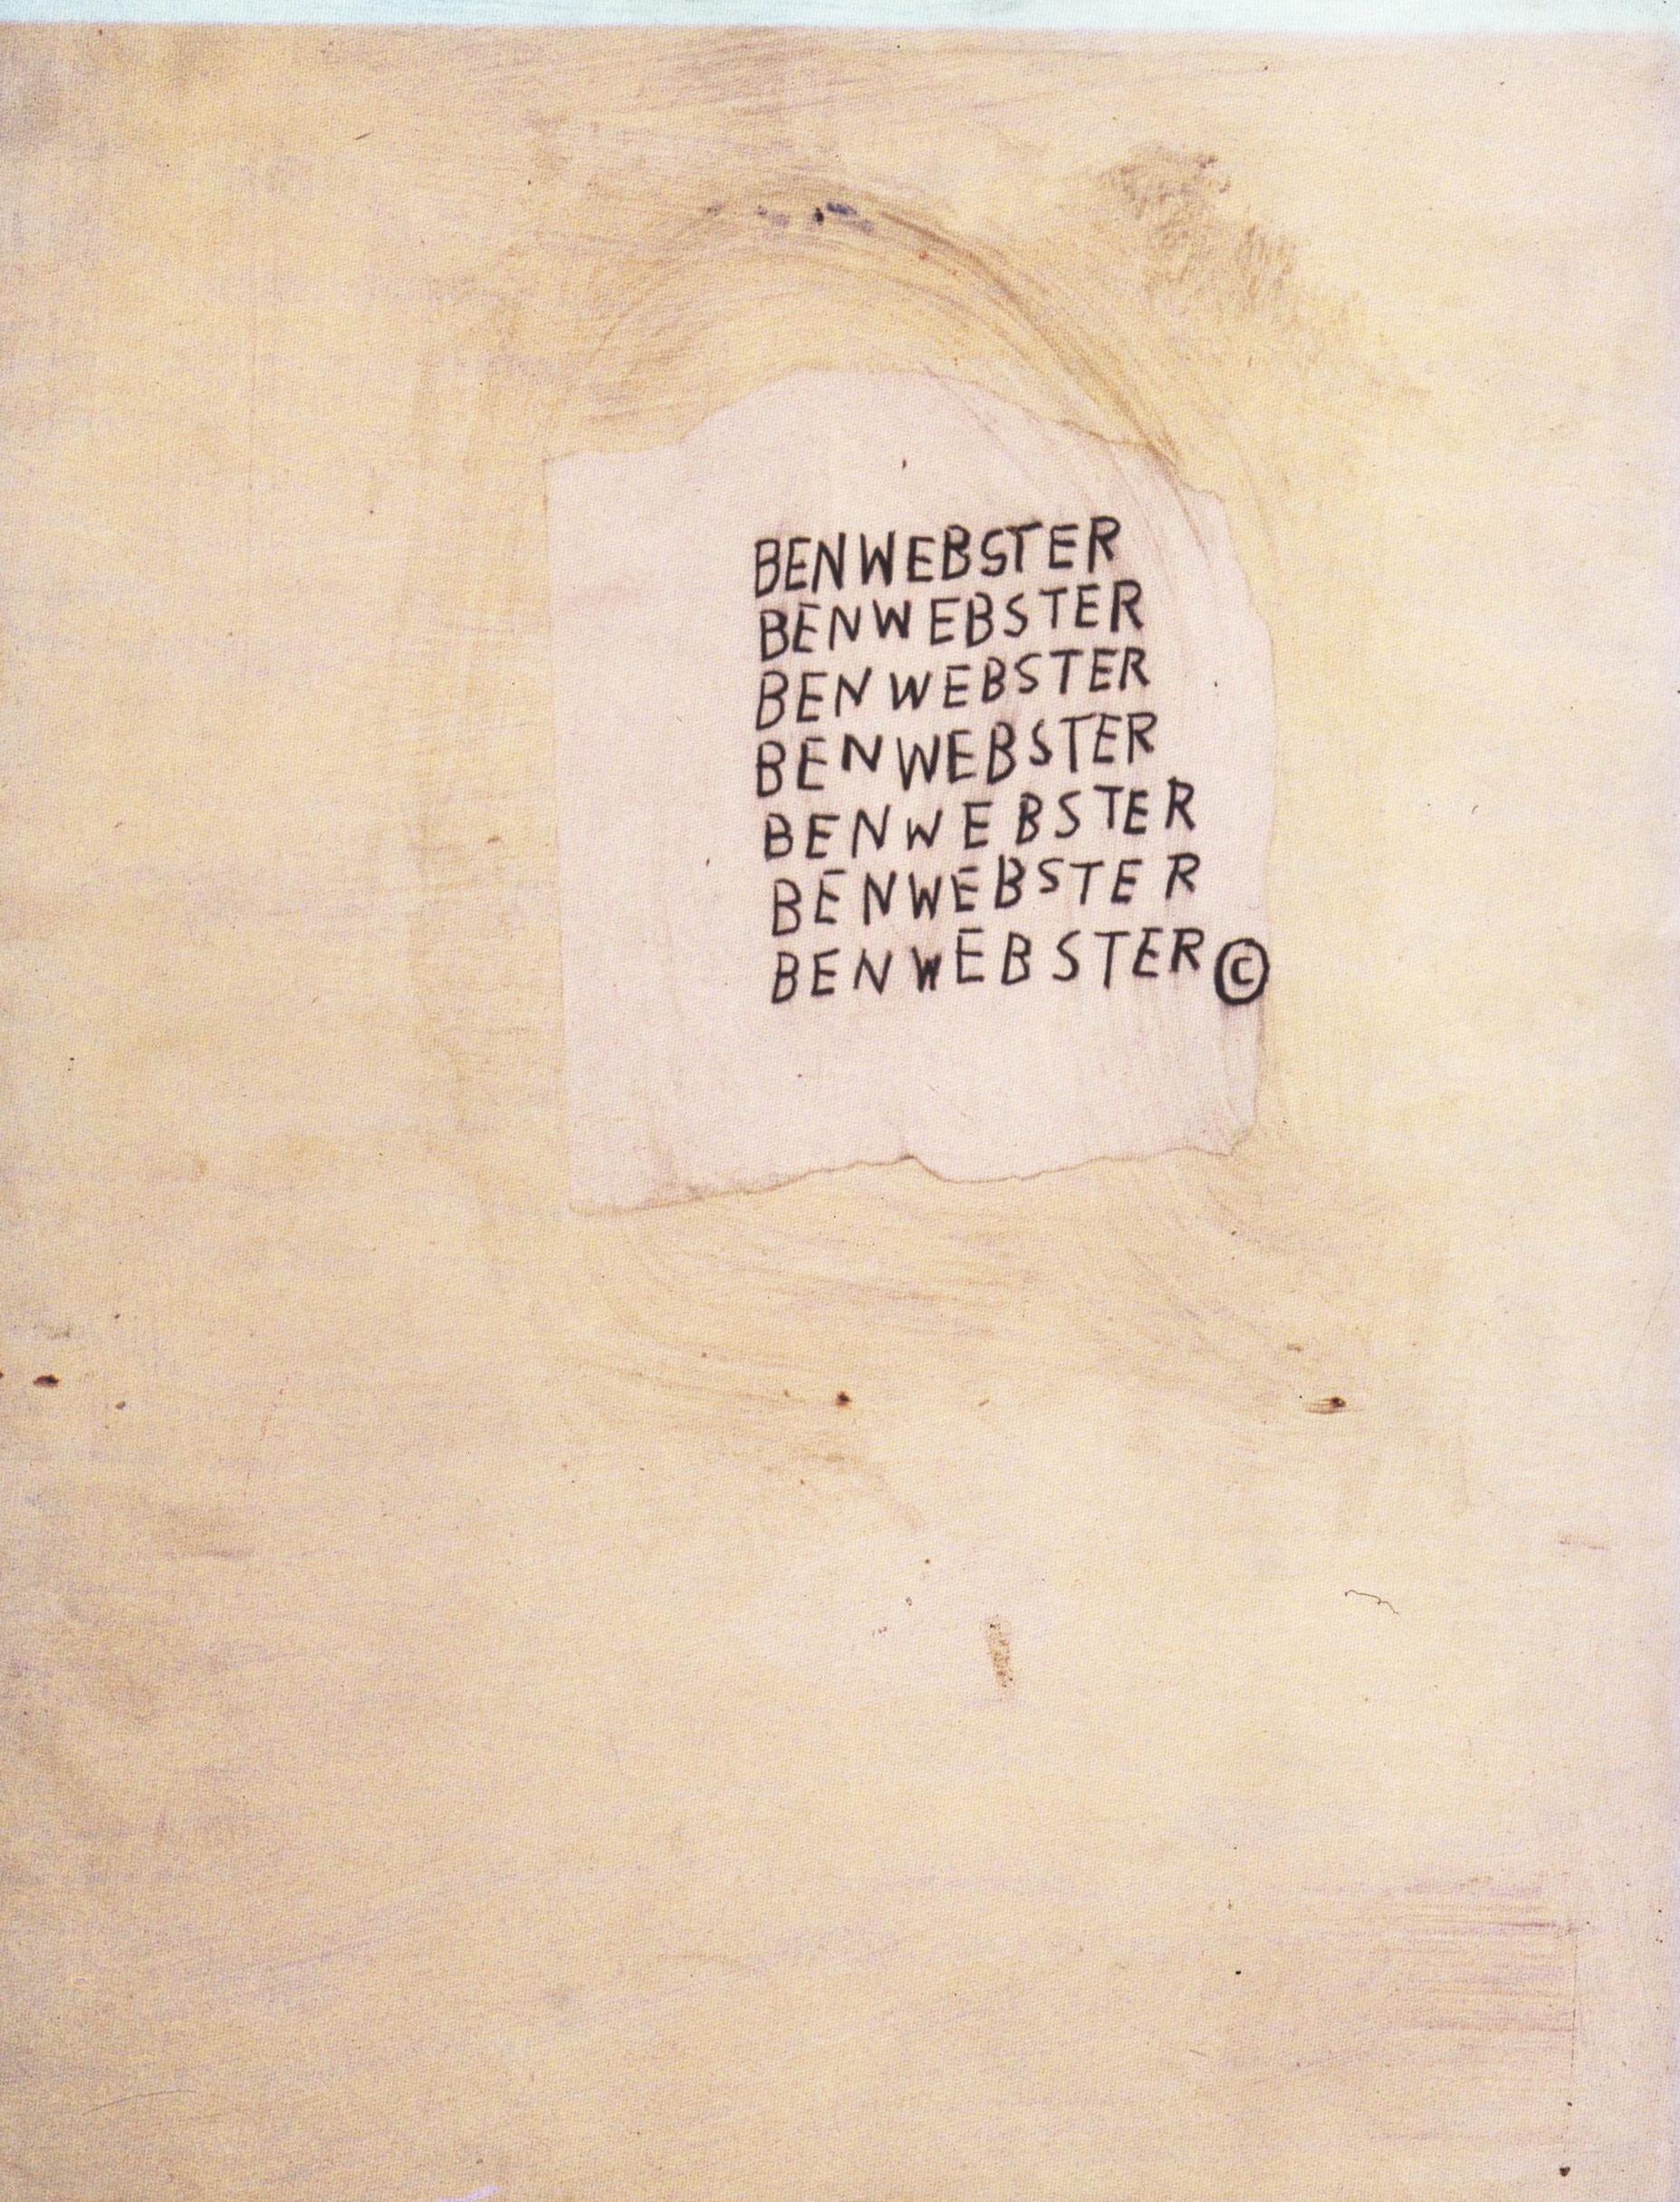 BEN WEBSTER
BEN WEBSTER
BEN WEBSTER
BEN WEBSTER
BEN WEBSTER
BEN WEBSTER
BEN WEBSTER ©